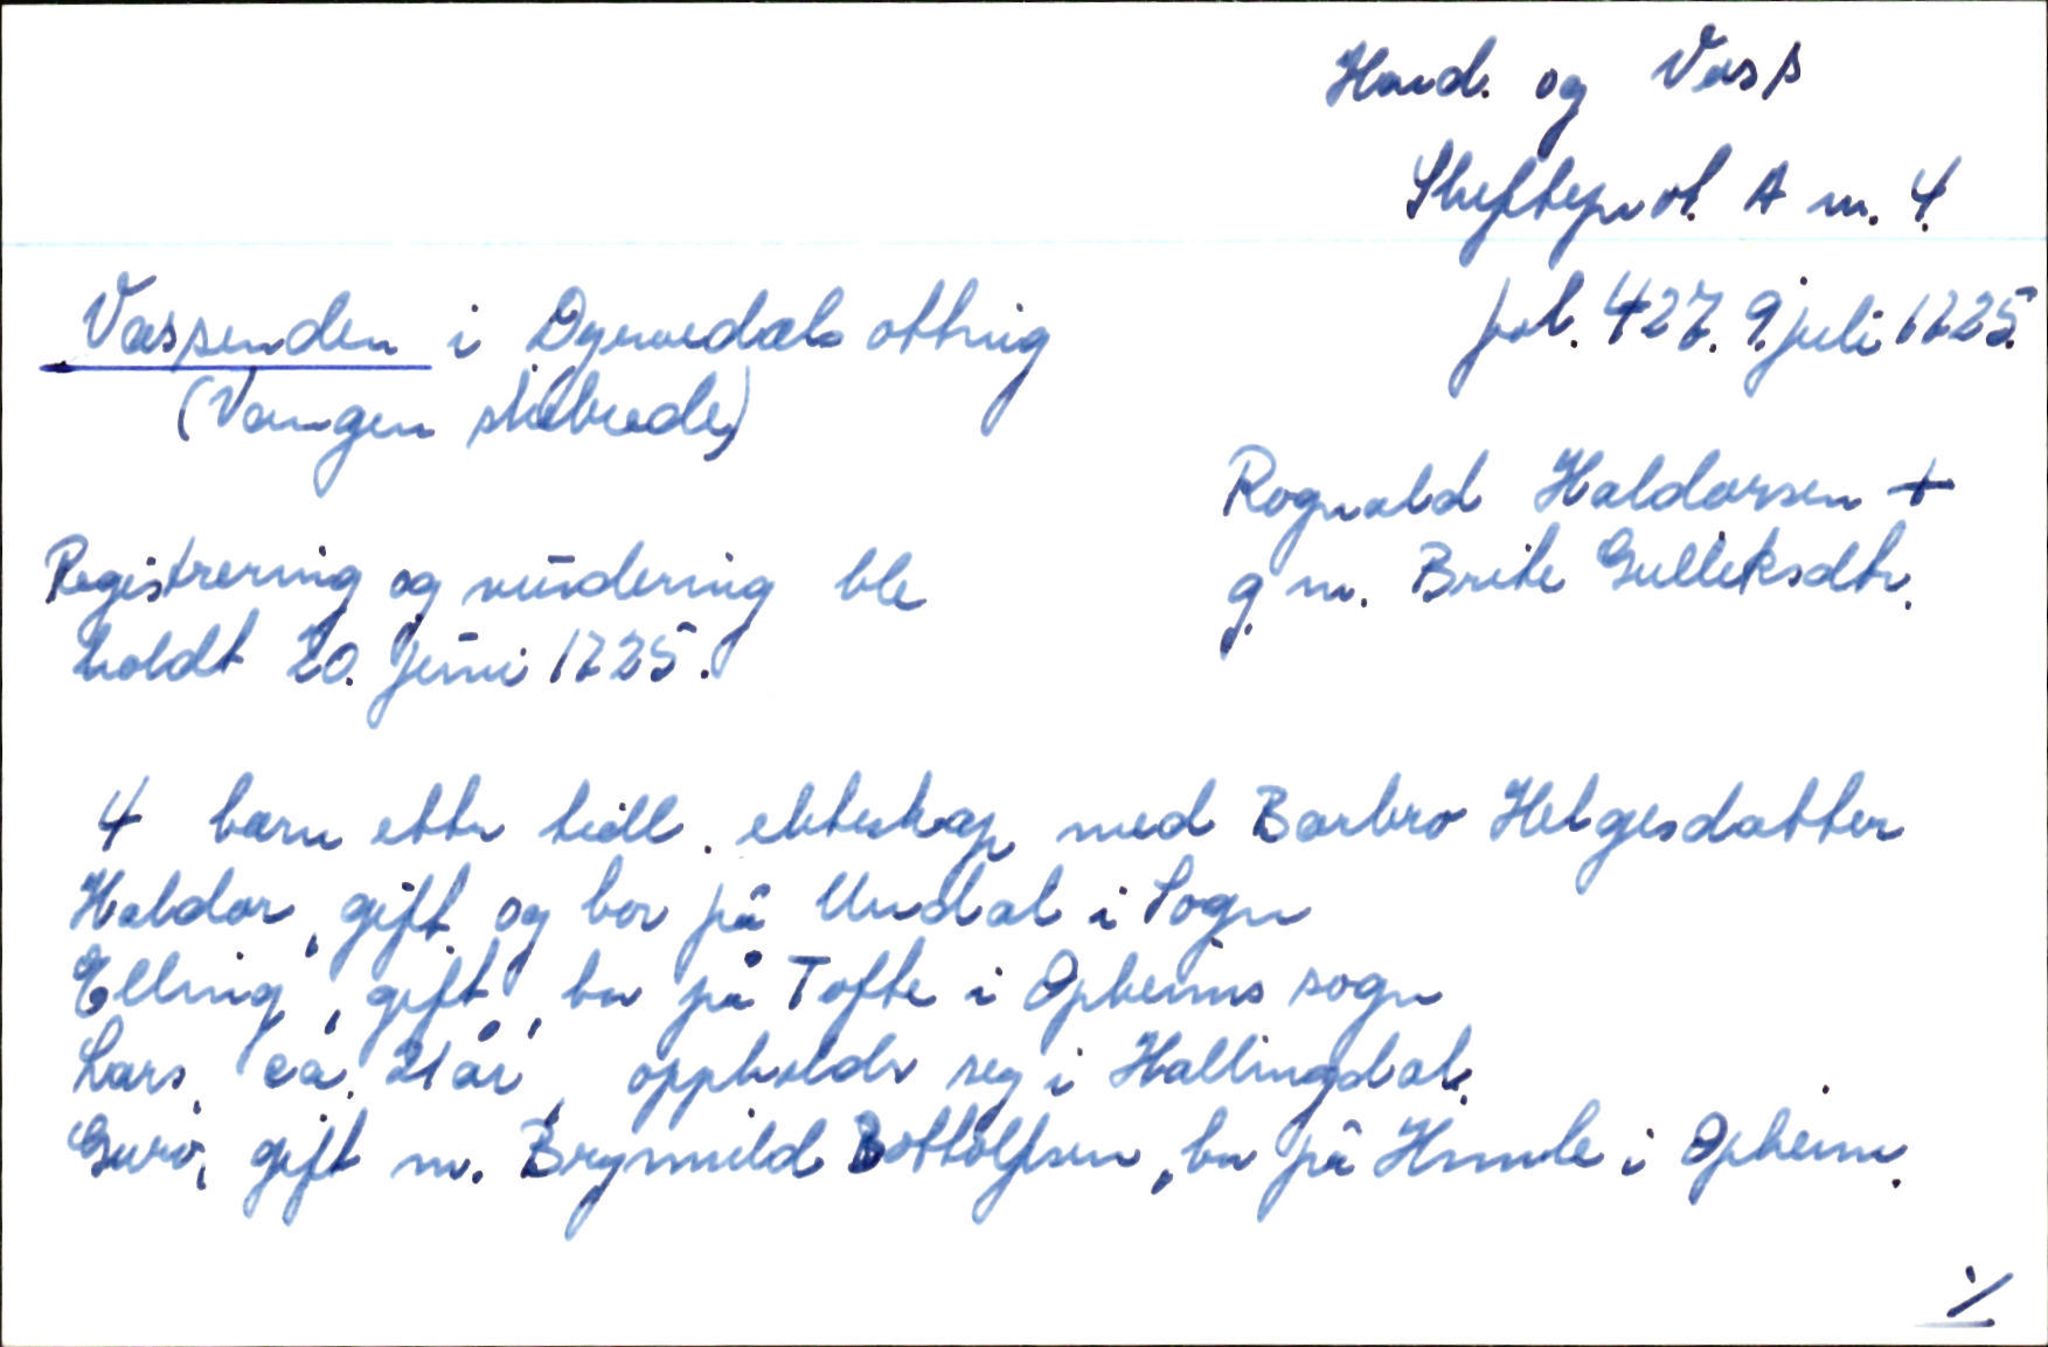 Hard. og Voss
Skifteprot. A nr. 4.
fol. 427. 9. juli 1725.
Vassenden i Dyrvedals otting
(Vangen skibrede)
Rognald Haldorsen +
g. m. Brite Gulleksdtr.
Registrering og vurdering ble
holdt 20. juni 1725.
4 barn etter tidl. ekteskap med Barbro Helgesdatter
Haldor, gift og bor på Undal i Sogn
Elling, gift, bor på Tofte i Opheims sogn
Lars, ca. 21 år, oppholdr seg i Hallingdal.
Guro, gift m. Brynnild Bottolfsen, bor på Himle i Opheim.
./.